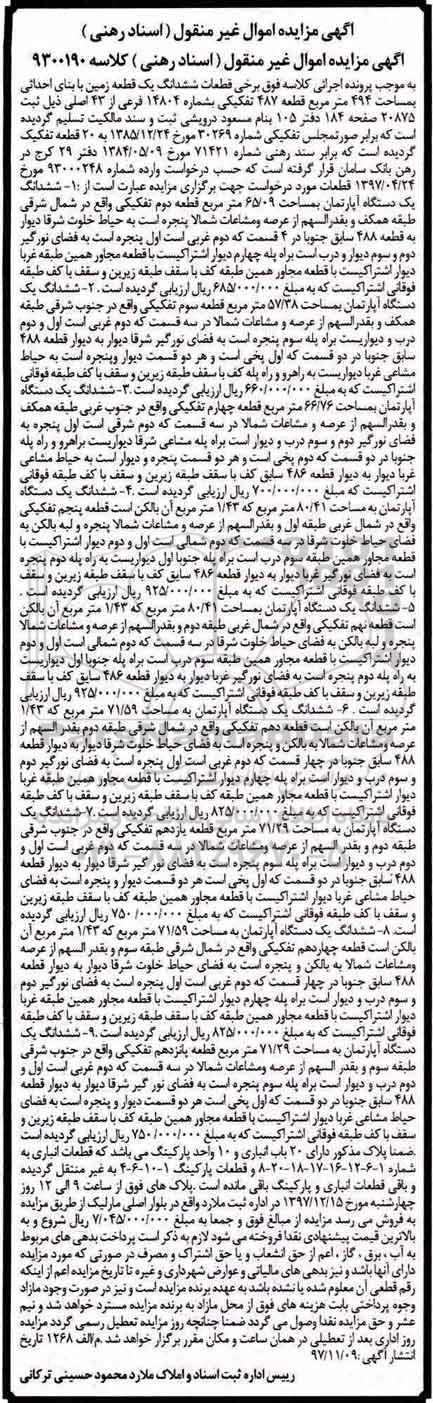 آگهی مزایده اموال غیر منقول ( اسناد رهنی )
آگهی مزایده اموال غیر منقول ( اسناد رهنی ) کلاسه ۹۳۰۰۱۹۰
به موجب پرونده اجرائی کلاسه فوق برخی قطعات ششدانگ یک قطعه زمین با بنای احداثی
بمساحت ۴۹۴ متر مربع قطعه ۴۸۷ تفکیکی بشماره ۱۴۸۰۴ فرعی از ۴۳ اصلی ذیل ثبت
۲۰۸۷۵ صفحه ۱۸۴ دفتر ۱۰۵ بنام مسعود درویشی ثبت و سند مالکیت تسلیم گردیده
است که برابر صورتمجلس تفکیکی شماره ۳۰۲۶۹ مورخ ۱۳۸۵/۱۲/۲۴ به ۲۰ قطعه تفکیک
گردیده است که برابر سند رهنی شماره ۷۱۴۲۱ مورخ ۱۳۸۴/۰۵/۰۹ دفتر ۲۹ کرج در
رهن بانک سامان قرار گرفته است که حسب درخواست وارده شماره ۹۳۰۰۰۲۴۸ مورخ
۱۳۹۷/۰۴/۲۴ قطعات مورد درخواست جهت برگزاری مزایده عبارت است از :۱- ششدانگ
یک دستگاه آپارتمان بمساحت ۶۵/۰۹ متر مربع قطعه دوم تفکیکی واقع در شمال شرقی
طبقه همکف و بقدرالسهم از عرصه ومشاعات شمالا پنجره است به حیاط خلوت شرقا دیوار
به قطعه ۴۸۸ سابق جنوبا در ۴ قسمت که دوم غربی است اول پنجره است به فضای نورگیر
دوم و سوم دیوار و درب است براه پله چهارم دیوار اشتراکیست با قطعه مجاور همین طبقه غربا
دیوار اشتراکیست با قطعه مجاور همین طبقه کف با سقف طبقه زیرین و سقف با کف طبقه
فوقانی اشتراکیست که به مبلغ ۶۸۵/۰۰۰/۰۰۰ ریال ارزیابی گردیده است . ۲- ششدانگ یک
دستگاه آپارتمان بمساحت ۵۷/۳۸ متر مربع قطعه سوم تفکیکی واقع در جنوب شرقی طبقه
همکف و بقدرالسهم از عرصه و مشاعات شمالا در سه قسمت که دوم غربی است اول و دوم
درب و دیواریست براه پله سوم پنجره است به فضای نورگیر شرقا دیوار به دیوار قطعه ۴۸۸
سابق جنوبا در دو قسمت که اول پخی است و هر دو قسمت دیوار وپنجره است به حیاط
مشاعی غربا دیواریست به راهرو و راه پله کف با سقف طبقه زیرین و سقف با کف طبقه فوقانی
اشتراکیست که به مبلغ ۶۶۰/۰۰۰/۰۰۰ ریال ارزیابی گردیده است .۳- ششدانگ یک دستگاه
آپارتمان بمساحت ۶۶/۷۶ متر مربع قطعه چهارم تفکیکی واقع در جنوب غربی طبقه همکف
و بقدرالسهم از عرصه و مشاعات شمالا در سه قسمت که دوم شرقی است اول پنجره به
فضای نورگیر دوم و سوم درب و دیوار است براه پله مشاعی شرقا دیواریست براهرو و راه پله
جنوبا در دو قسمت که دوم پخی است و هر دو قسمت پنجره و دیوار است به حیاط مشاعی
غربا دیوار به دیوار قطعه ۴۸۶ سابق کف با سقف طبقه زیرین و سقف با کف طبقه فوقانی
اشتراکیست که مبلغ ۷۰۰/۰۰۰/۰۰۰ ریال ارزیابی گردیده است .۴- ششدانگ یک دستگاه
آپارتمان به مساحت ۸۰/۴۱ متر مربع که ۱/۴۳ متر مربع آن بالکن است قطعه پنجم تفکیکی
واقع در شمال غربی طبقه اول و بقدرالسهم از عرصه و مشاعات شمالا پنجره و لبه بالکن به
فضای حیاط خلوت شرقا در سه قسمت که دوم شمالی است اول و دوم دیوار اشتراکیست با
قطعه مجاور همین طبقه سوم درب است براه پله جنوبا اول دیواریست به راه پله دوم پنجره
است به فضای نورگیر غربا دیوار به دیوار قطعه ۴۸۶ سابق کف با سقف طبقه زیرین و سقف
با کف طبقه فوقانی اشتراکیست که به مبلغ ۹۲۵/۰۰۰/۰۰۰ ریال ارزیابی گردیده است .
۵- ششدانگ یک دستگاه آپارتمان بمساحت ۸۰/۴۱ متر مربع که ۱/۴۳ متر مربع آن بالکن
است قطعه نهم تفکیکی واقع در شمال غربی طبقه دوم و بقدرالسهم از عرصه و مشاعات شمالا
پنجره و لبه بالکن به فضای حیاط خلوت شرقا در سه قسمت که دوم شمالی است اول و دوم
دیوار اشتراکیست با قطعه مجاور همین طبقه سوم درب است براه پله جنوبا اول دیواریست
به راه پله دوم پنجره است به فضای نورگیر غربا دیوار به دیوار قطعه ۴۸۶ سابق کف با سقف
طبقه زیرین و سقف با کف طبقه فوقانی اشتراکیست که به مبلغ ۹۲۵/۰۰۰/۰۰۰ ریال ارزیابی
گردیده است . ۶- ششدانگ یک دستگاه آپارتمان به مساحت ۷۱/۵۹ متر مربع که ۱/۴۳
متر مربع آن بالکن است قطعه دهم تفکیکی واقع در شمال شرقی طبقه دوم بقدر السهم از
عرصه ومشاعات شمالا به بالکن و پنجره است به فضای حیاط خلوت شرقا دیوار به دیوار قطعه
۴۸۸ سابق جنوبا در چهار قسمت که دوم غربی است اول پنجره است به فضای نورگیر دوم
و سوم درب و دیوار است براه پله چهارم دیوار اشتراکیست با قطعه مجاور همین طبقه غربا
دیوار اشتراکیست با قطعه مجاور همین طبقه کف با سقف طبقه زیرین و سقف با کف طبقه
فوقانی اشتراکیست که به مبلغ ۸۲۵/۰۰۰/۰۰۰ ریال ارزیابی گردیده است .۷- ششدانگ یک
دستگاه آپارتمان به مساحت ۷۱/۲۹ متر مربع قطعه یازدهم تفکیکی واقع در جنوب شرقی
طبقه دوم و بقدر السهم از عرصه ومشاعات شمالا در سه قسمت که دوم غربی است اول و
دوم درب و دیوار است براه پله سوم پنجره است به فضای نور گیر شرقا دیوار به دیوار قطعه
۴۸۸ سابق جنوبا در دو قسمت که اول پخی است هر دو قسمت دیوار و پنجره است به فضای
حیاط مشاعی غربا دیوار اشتراکیست با قطعه مجاور همین طبقه کف با سقف طبقه زیرین
و سقف با کف طبقه فوقانی اشتراکیست که به مبلغ ۷۵۰/۰۰۰/۰۰۰ ریال ارزیابی گردیده
است. ۸- ششدانگ یک دستگاه آپارتمان به مساحت ۷۱/۵۹ متر مربع که ۱/۴۳ متر مربع آن
بالکن است قطعه چهاردهم تفکیکی واقع در شمال شرقی طبقه سوم و بقدر السهم از عرصه
ومشاعات شمالا به بالکن و پنجره است به فضای حیاط خلوت شرقا دیوار به دیوار قطعه
۴۸۸ سابق جنوبا در چهار قسمت که دوم غربی است اول پنجره است به فضای نورگیر دوم
و سوم درب و دیوار است براه پله چهارم دیوار اشتراکیست با قطعه مجاور همین طبقه غربا
دیوار اشتراکیست با قطعه مجاور همین طبقه کف با سقف طبقه زیرین و سقف با کف طبقه
فوقانی اشتراکیست که به مبلغ ۸۲۵/۰۰۰/۰۰۰ ریال ارزیابی گردیده است .۹- ششدانگ یک
دستگاه آپارتمان به مساحت ۷۱/۲۹ متر مربع قطعه پانزدهم تفکیکی واقع در جنوب شرقی
طبقه سوم و بقدر السهم از عرصه ومشاعات شمالا در سه قسمت که دوم غربی است اول و
دوم درب و دیوار است براه پله سوم پنجره است به فضای نور گیر شرقا دیوار به دیوار قطعه
۴۸۸ سابق جنوبا در دو قسمت که اول پخی است هر دو قسمت دیوار و پنجره است به فضای
حیاط مشاعی غربا دیوار اشتراکیست با قطعه مجاور همین طبقه کف با سقف طبقه زیرین و
سقف با کف طبقه فوقانی اشتراکیست که به مبلغ ۷۵۰/۰۰۰/۰۰۰ ریال ارزیابی گردیده است
.ضمنا پلاک مذکور دارای ۲۰ باب انباری و ۱۰ واحد پارکینگ می باشد که قطعات انباری به
شماره ۱-۶-۱۲-۱۶-۱۷-۱۸-۲۰-۸ و قطعات پارکینگ ۱-۱۰-۶-۴ به غیر منتقل گردیده
و باقی قطعات انباری و پارکینگ باقی مانده است .پلاک های فوق از ساعت ۹ الی ۱۲ روز
چهارشنبه مورخ ۱۳۹۷/۱۲/۱۵ در اداره ثبت ملارد واقع در بلوار اصلی مارلیک از طریق مزایده
به فروش می رسد مزایده از مبالغ فوق و جمعا به مبلغ ۷/۰۴۵/۰۰۰/۰۰۰ ریال شروع و به
بالاترین قیمت پیشنهادی نقدا فروخته می شود لازم به ذکر است پرداخت بدهی های مربوط
به آب ، برق ، گاز ، اعم از حق انشعاب و یا حق اشتراک و مصرف در صورتی که مورد مزایده
دارای آنها باشد و نیز بدهی های مالیاتی و عوارض شهرداری و غیره تا تاریخ مزایده اعم از اینکه
رقم قطعی آن معلوم شده یا نشده باشد به عهده برنده مزایده است و نیز در صورت وجود مازاد
وجوه پرداختی بابت هزینه های فوق از محل مازاد به برنده مزایده مسترد خواهد شد و نیم
عشر و حق مزایده نقدا وصول می گردد ضمنا چنانچه روز مزایده تعطیل رسمی گردد مزایده
روز اداری بعد از تعطیلی در همان ساعت و مکان مقرر برگزار خواهد شد .م/الف ۱۲۶۸ تاریخ
انتشار آگهی: ۹۷/۱۱/۰۹
رییس اداره ثبت اسناد و املاک ملارد محمود حسینی ترکانی